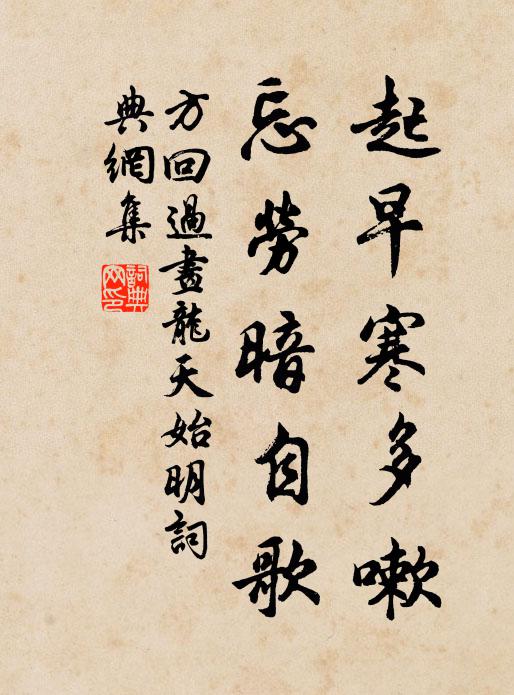 起早寒多嗽
忘勞暗自歌
方回過畫龍天始明詞
典網集
詞典網印